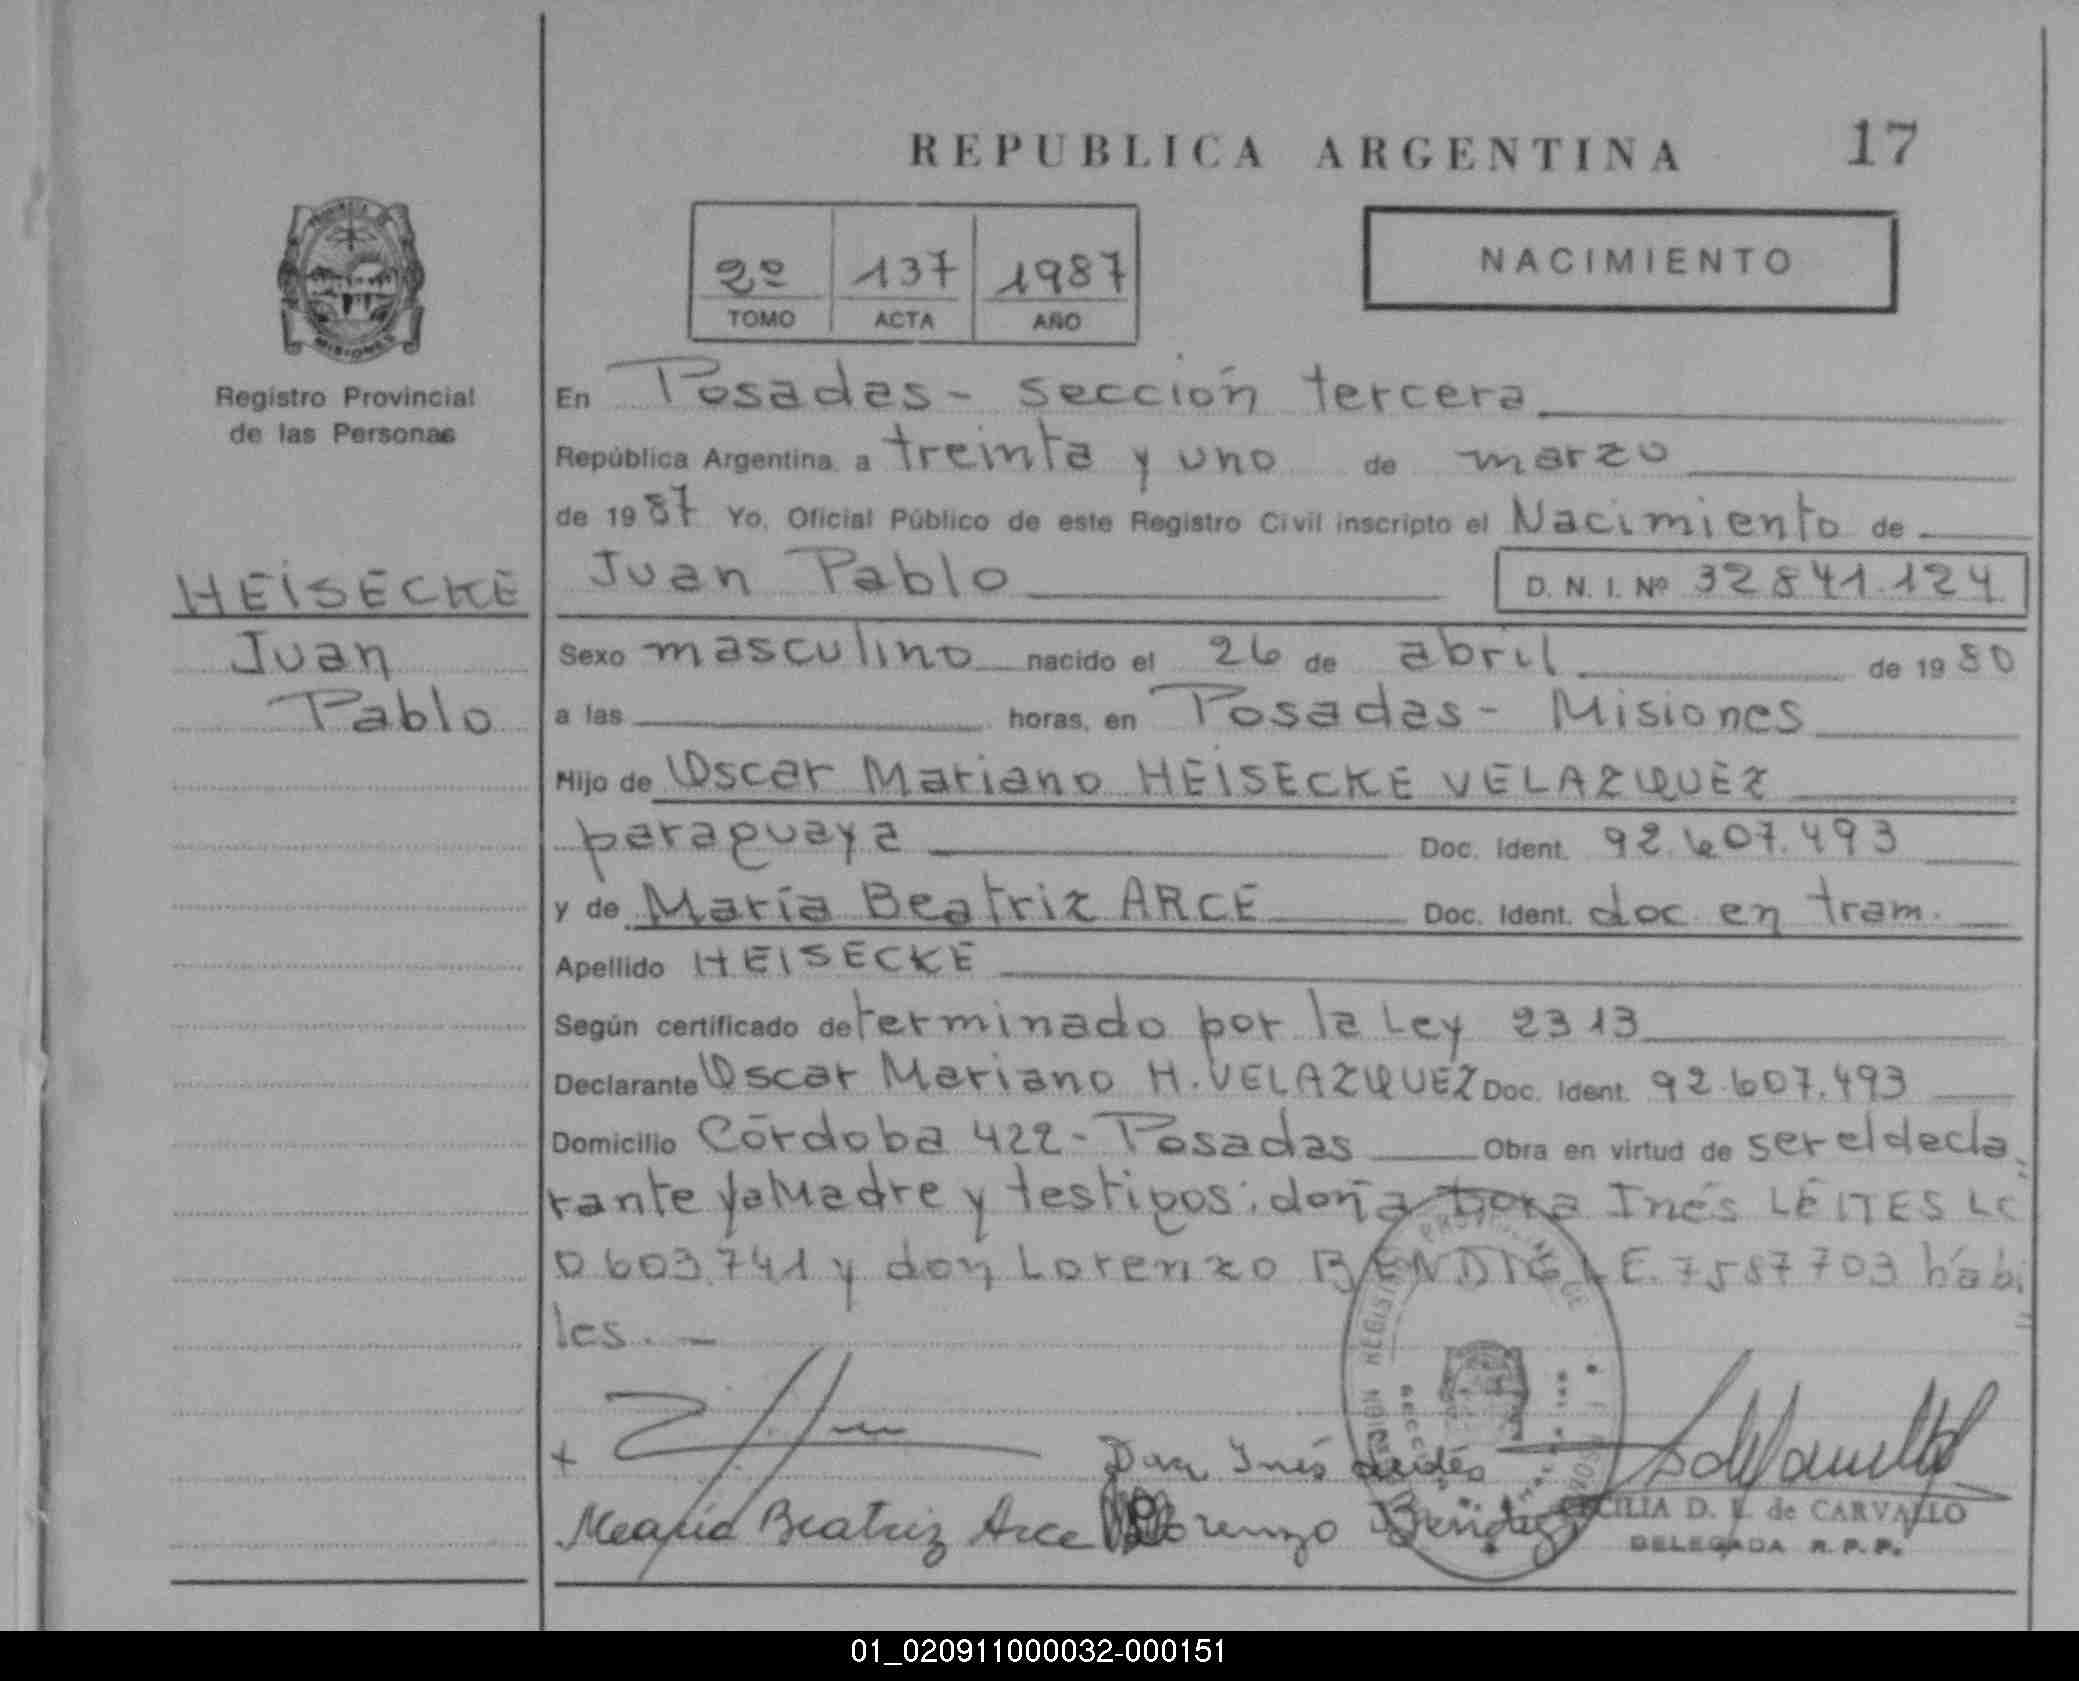 REPUBLICA ARGENTINA 17
2º 137 1987
TOMO ACTA AÑO
NACIMIENTO
PROVINCIA DE
MISIONES
Registro Provincial
de las Personas
HEISECKE
Juan
Pablo
En Posadas - sección tercera
República Argentina a treinta y uno de marzo
de 1987 Yo, Oficial Público de este Registro Civil inscripto el Nacimiento de
Juan Pablo D. N. I. Nº 32841.124
Sexo masculino nacido el 26 de abril de 1980
a las horas, en Posadas - Misiones
Hijo de Oscar Mariano HEISECKE VELAZQUEZ
paraguaya Doc. Ident. 92.607.493
y de María Beatriz ARCE Doc. Ident. doc en tram.
Apellido HEISECKE
Según certificado determinado por la Ley 2313
Declarante Oscar Mariano H. VELAZQUEZ Doc. Ident. 92.607.493
Domicilio Córdoba 422 - Posadas Obra en virtud de ser el decla
rante y la Madre y testigos: doña Dora Inés LEITES LC
0603.741 y don Lorenzo E. 7587703 hábi
les. -
María Beatriz Arce Lorenzo Benitez
CECILIA D. L. de CARVALLO
DELEGADA R. P. P.
01_020911000032-000151